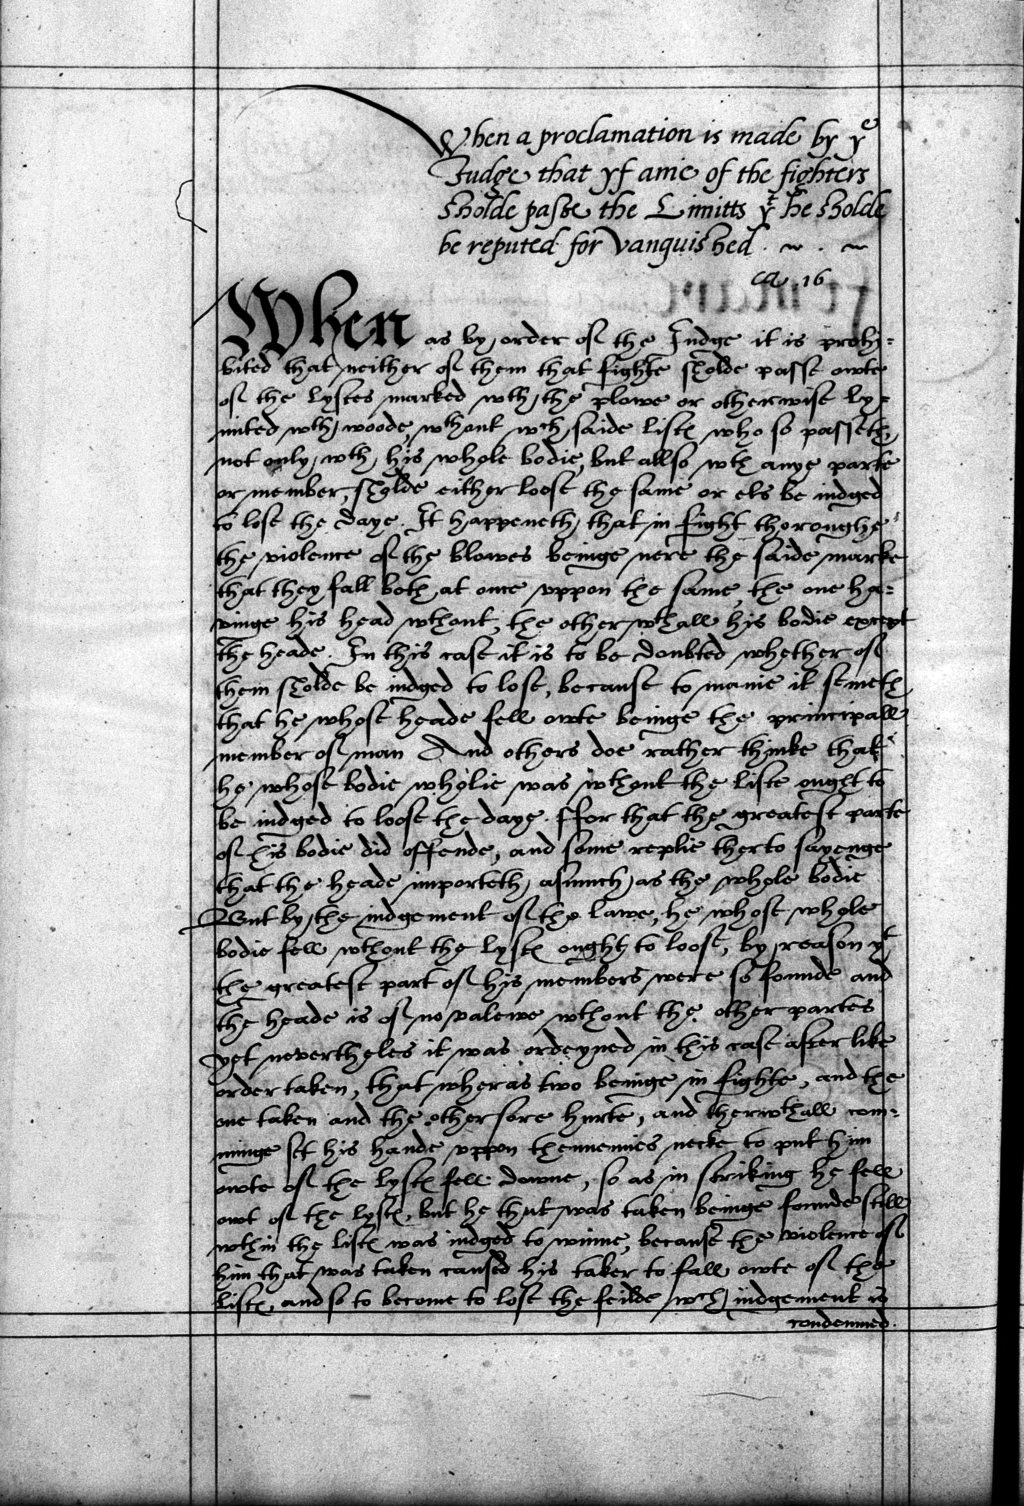 When a proclamation is made by yͤ
Judge that yf anie of the fighters
sholde passe the Limitts yͭ he sholde
be reputed for vanquished
ca. 16
When as by order of the Judge it is prohi-
bited that neither of them that fighte sholde passe owte
of the lystes marked wth the plowe or otherwise ly-
mited wth woode, wthout wch saide listes who so passeth
not only wth his whole bodie, but allso wth anye parte
or member, sholde either loose the same or els be iudged
to lose the daye. It happeneth that in fight thoroughe
the violence of the blowes beinge nere the saide marke
that they fall both at once vppon the same, the one ha-
vinge his head wthout, the other wthall his bodie except
the heade. In this case it is to be doubted whether of
them sholde be iudged to lose, because to manie it semeth
that he whose heade fell owte beinge the principall
member of man And others doe rather thinke that
he whose bodie wholie was wthout the liste ought to
be iudged to loose the daye. ffor that the greatest parte
of his bodie did offende, and some replie therto sayenge
that the heade importeth asmuch as the whole bodie
But by the iudgement of the lawe, he whose whole
bodie fell wthout the lystes ought to loose, by reason yͭ
the greatest part of his members were so founde and
the heade is of no valewe wthout the other partes
yet nevertheles it was ordeyned in this case after like
order taken, that wheras two beinge in fighte, and the
one taken and the other sore hurte, and therwthall com-
minge set his hande vppon thennemies necke to put him
owte of the lystes fell downe, so as in striking he fell
owt of the lystes, but he that was taken beinge founde still
wthin the listes was iudged to winne, because the violence of
him that was taken caused his taker to fall owte of the
listes, and so to become to lose the feilde wch iudgement is
condemned.